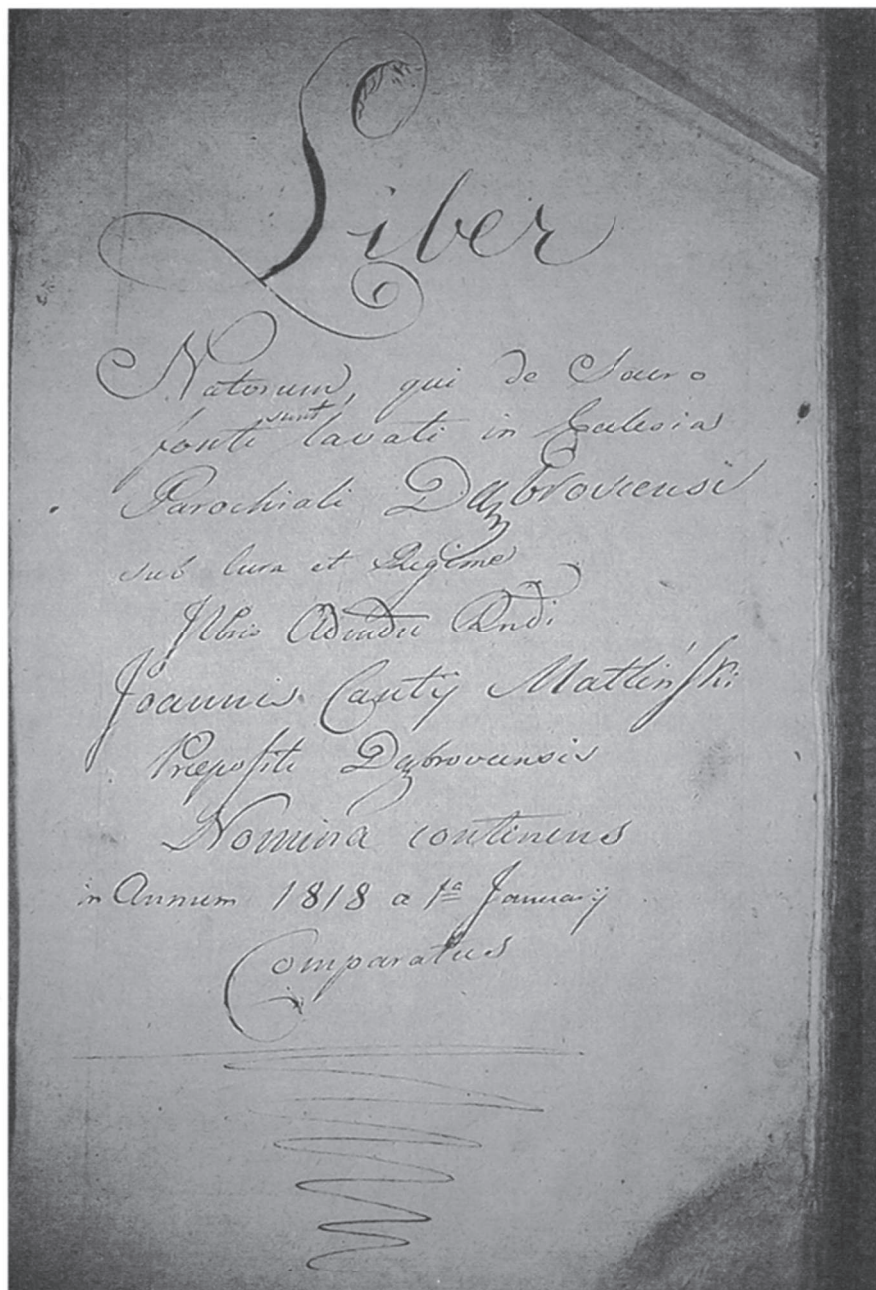 Liber
Natorum, qui de Sacro
fonte sunt lavati in Ecclesia
Parochiali Dąbroviensi
sub Cura et Regime
Joannis Canty Matliński
Præpositi Dąbroviensis
Nomina continens
in Annum 1818 a 1ª Januarij
Comparatus